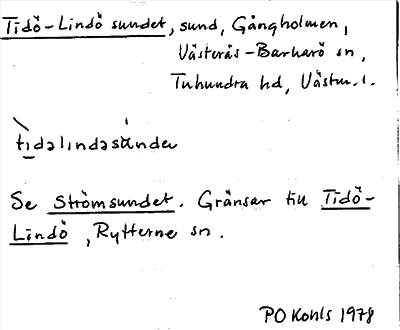 Tidö-Lindö sundet, sund, Gångholmen,
Västerås-Barkarö sn,
Tuhundra hd, Västm. l.
tìdalindasúndər
Se Strömsundet. Gränsar till Tidö-
Lindö, Rytterne sn.
PO Kohls 1978